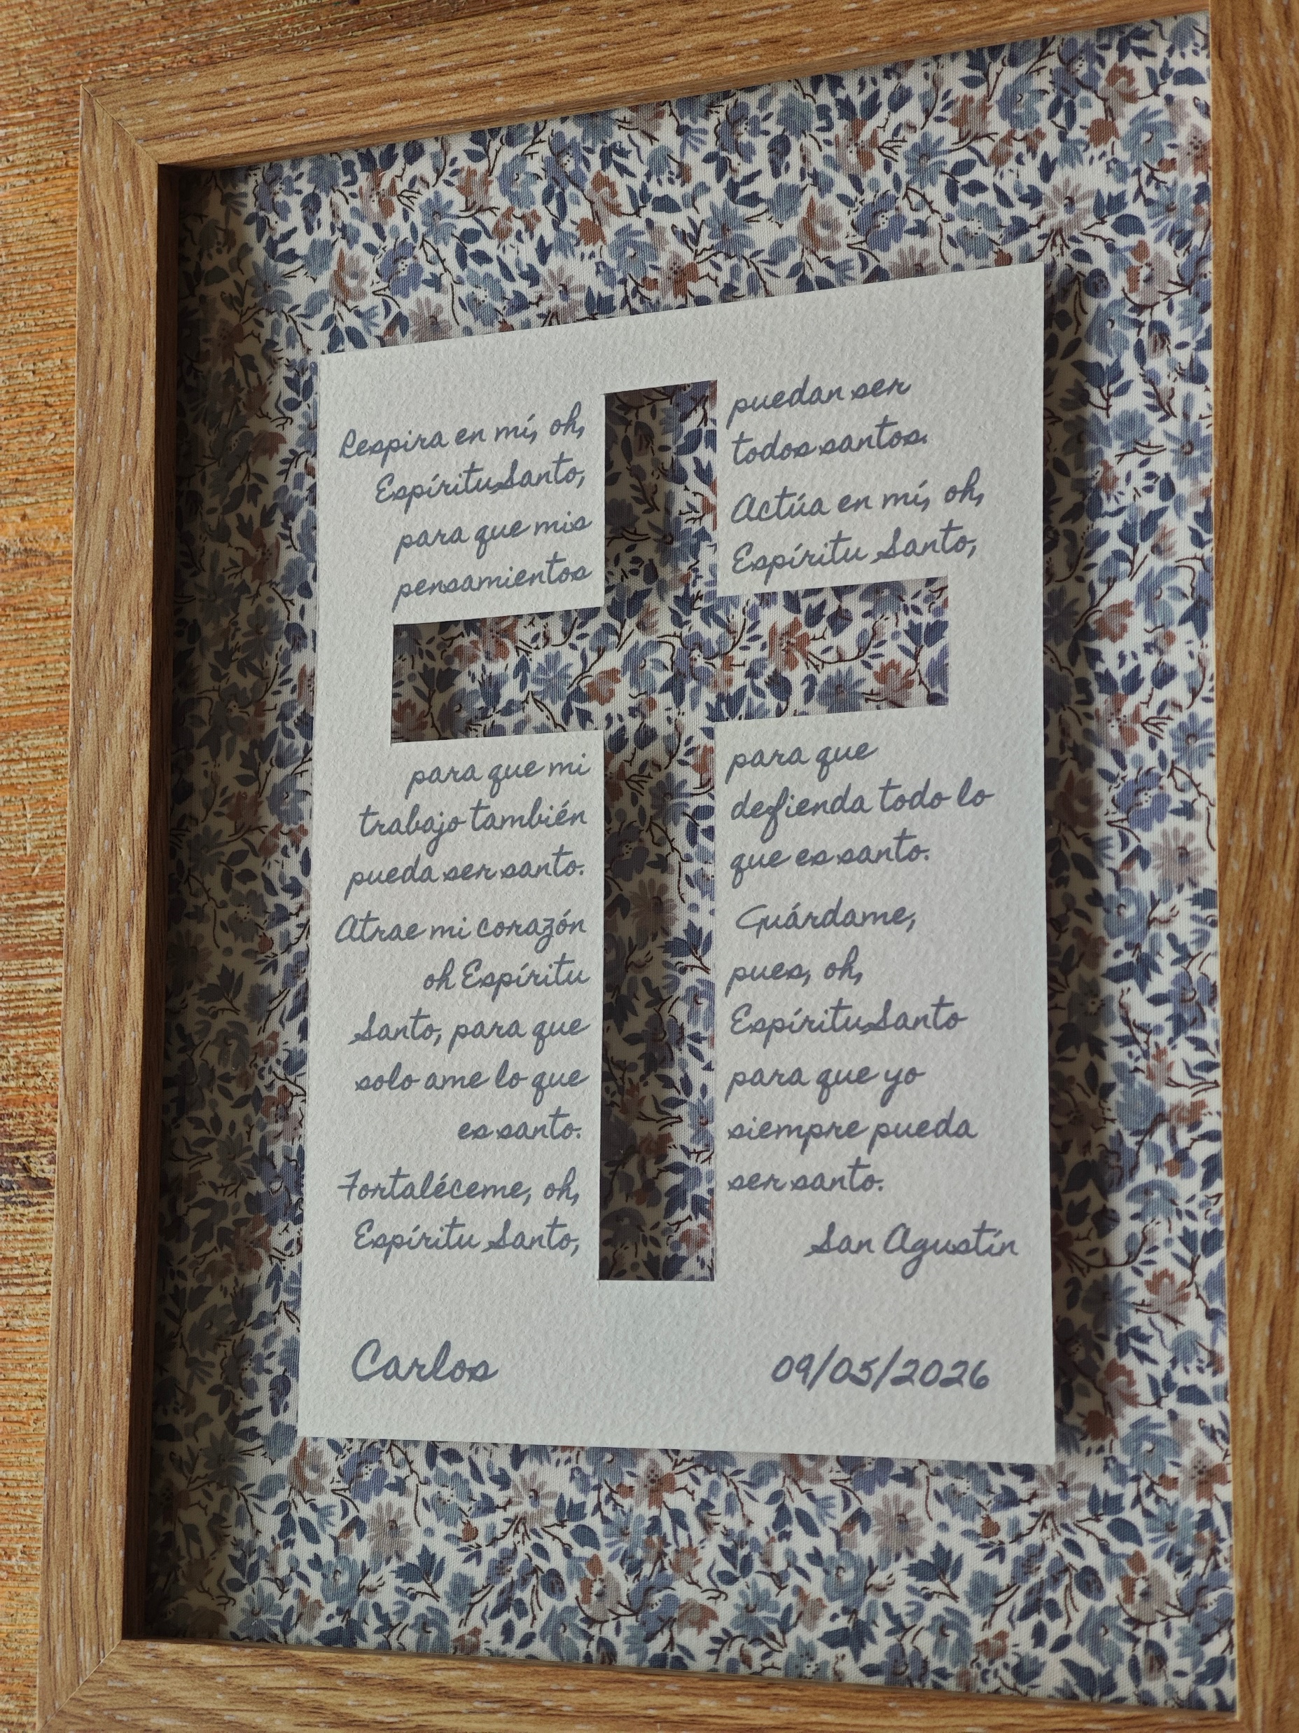 Respira en mí, oh,
Espíritu Santo,
para que mis
pensamientos
puedan ser
todos santos.
Actúa en mí, oh,
Espíritu Santo,
para que mi
trabajo también
pueda ser santo.
Atrae mi corazón
oh Espíritu
Santo, para que
solo ame lo que
es santo.
Fortaléceme, oh,
Espíritu Santo,
para que
defienda todo lo
que es santo.
Guárdame,
pues, oh,
Espíritu Santo
para que yo
siempre pueda
ser santo.
San Agustín
Carlos
09/05/2026